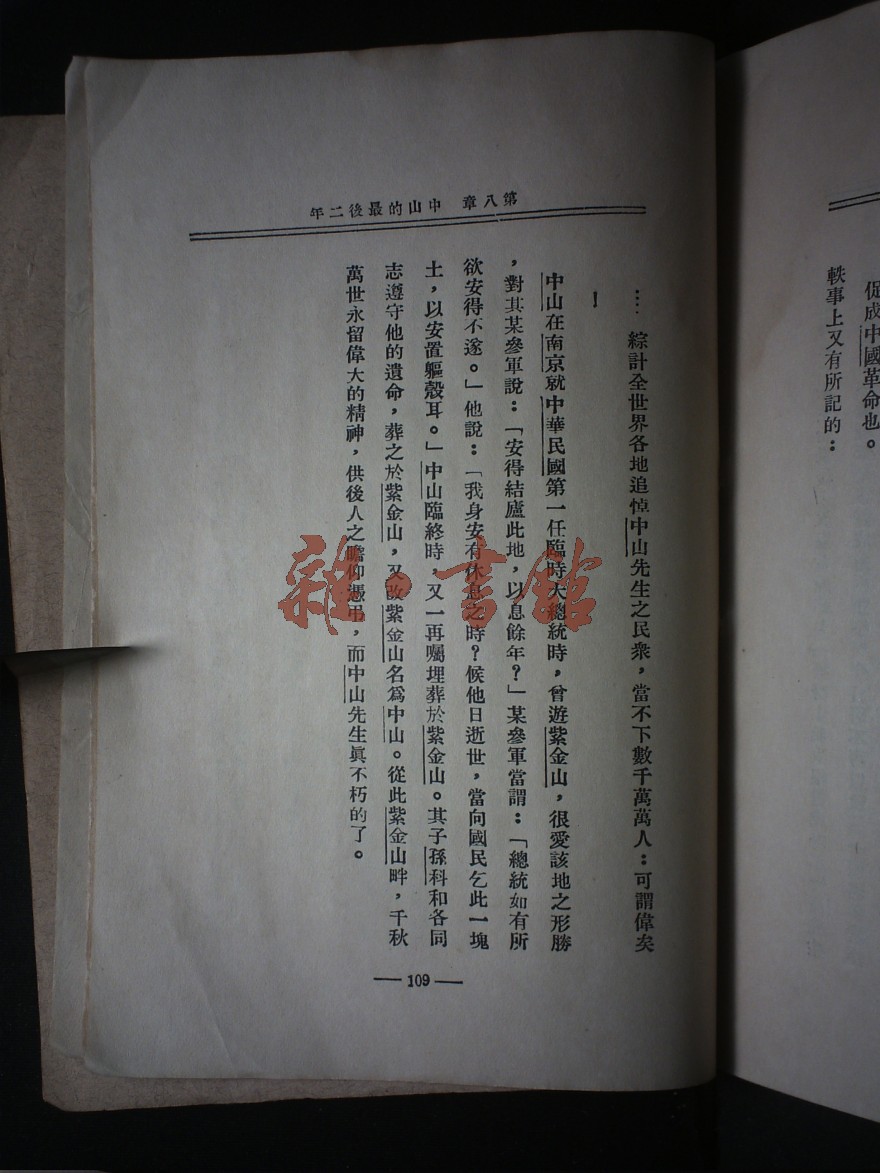 促成中國革命也。
軼事上又有所記的：
第八章 中山的最後二年
…… 綜計全世界各地追悼中山先生之民衆，當不下數千萬萬人：可謂偉矣
！
中山在南京就中華民國第一任臨時大總統時，曾遊紫金山，很愛該地之形勝
，對其某參軍說：「安得結廬此地，以息餘年？」某參軍當謂：「總統如有所
欲安得不遂。」他說：「我身安有休息之時？候他日逝世，當向國民乞此一塊
土，以安置軀殼耳。」中山臨終時，又一再囑埋葬於紫金山。其子孫科和各同
志遵守他的遺命，葬之於紫金山，又改紫金山名爲中山。從此紫金山畔，千秋
萬世永留偉大的精神，供後人之瞻仰憑弔，而中山先生眞不朽的了。
— 109 —
雜·書館